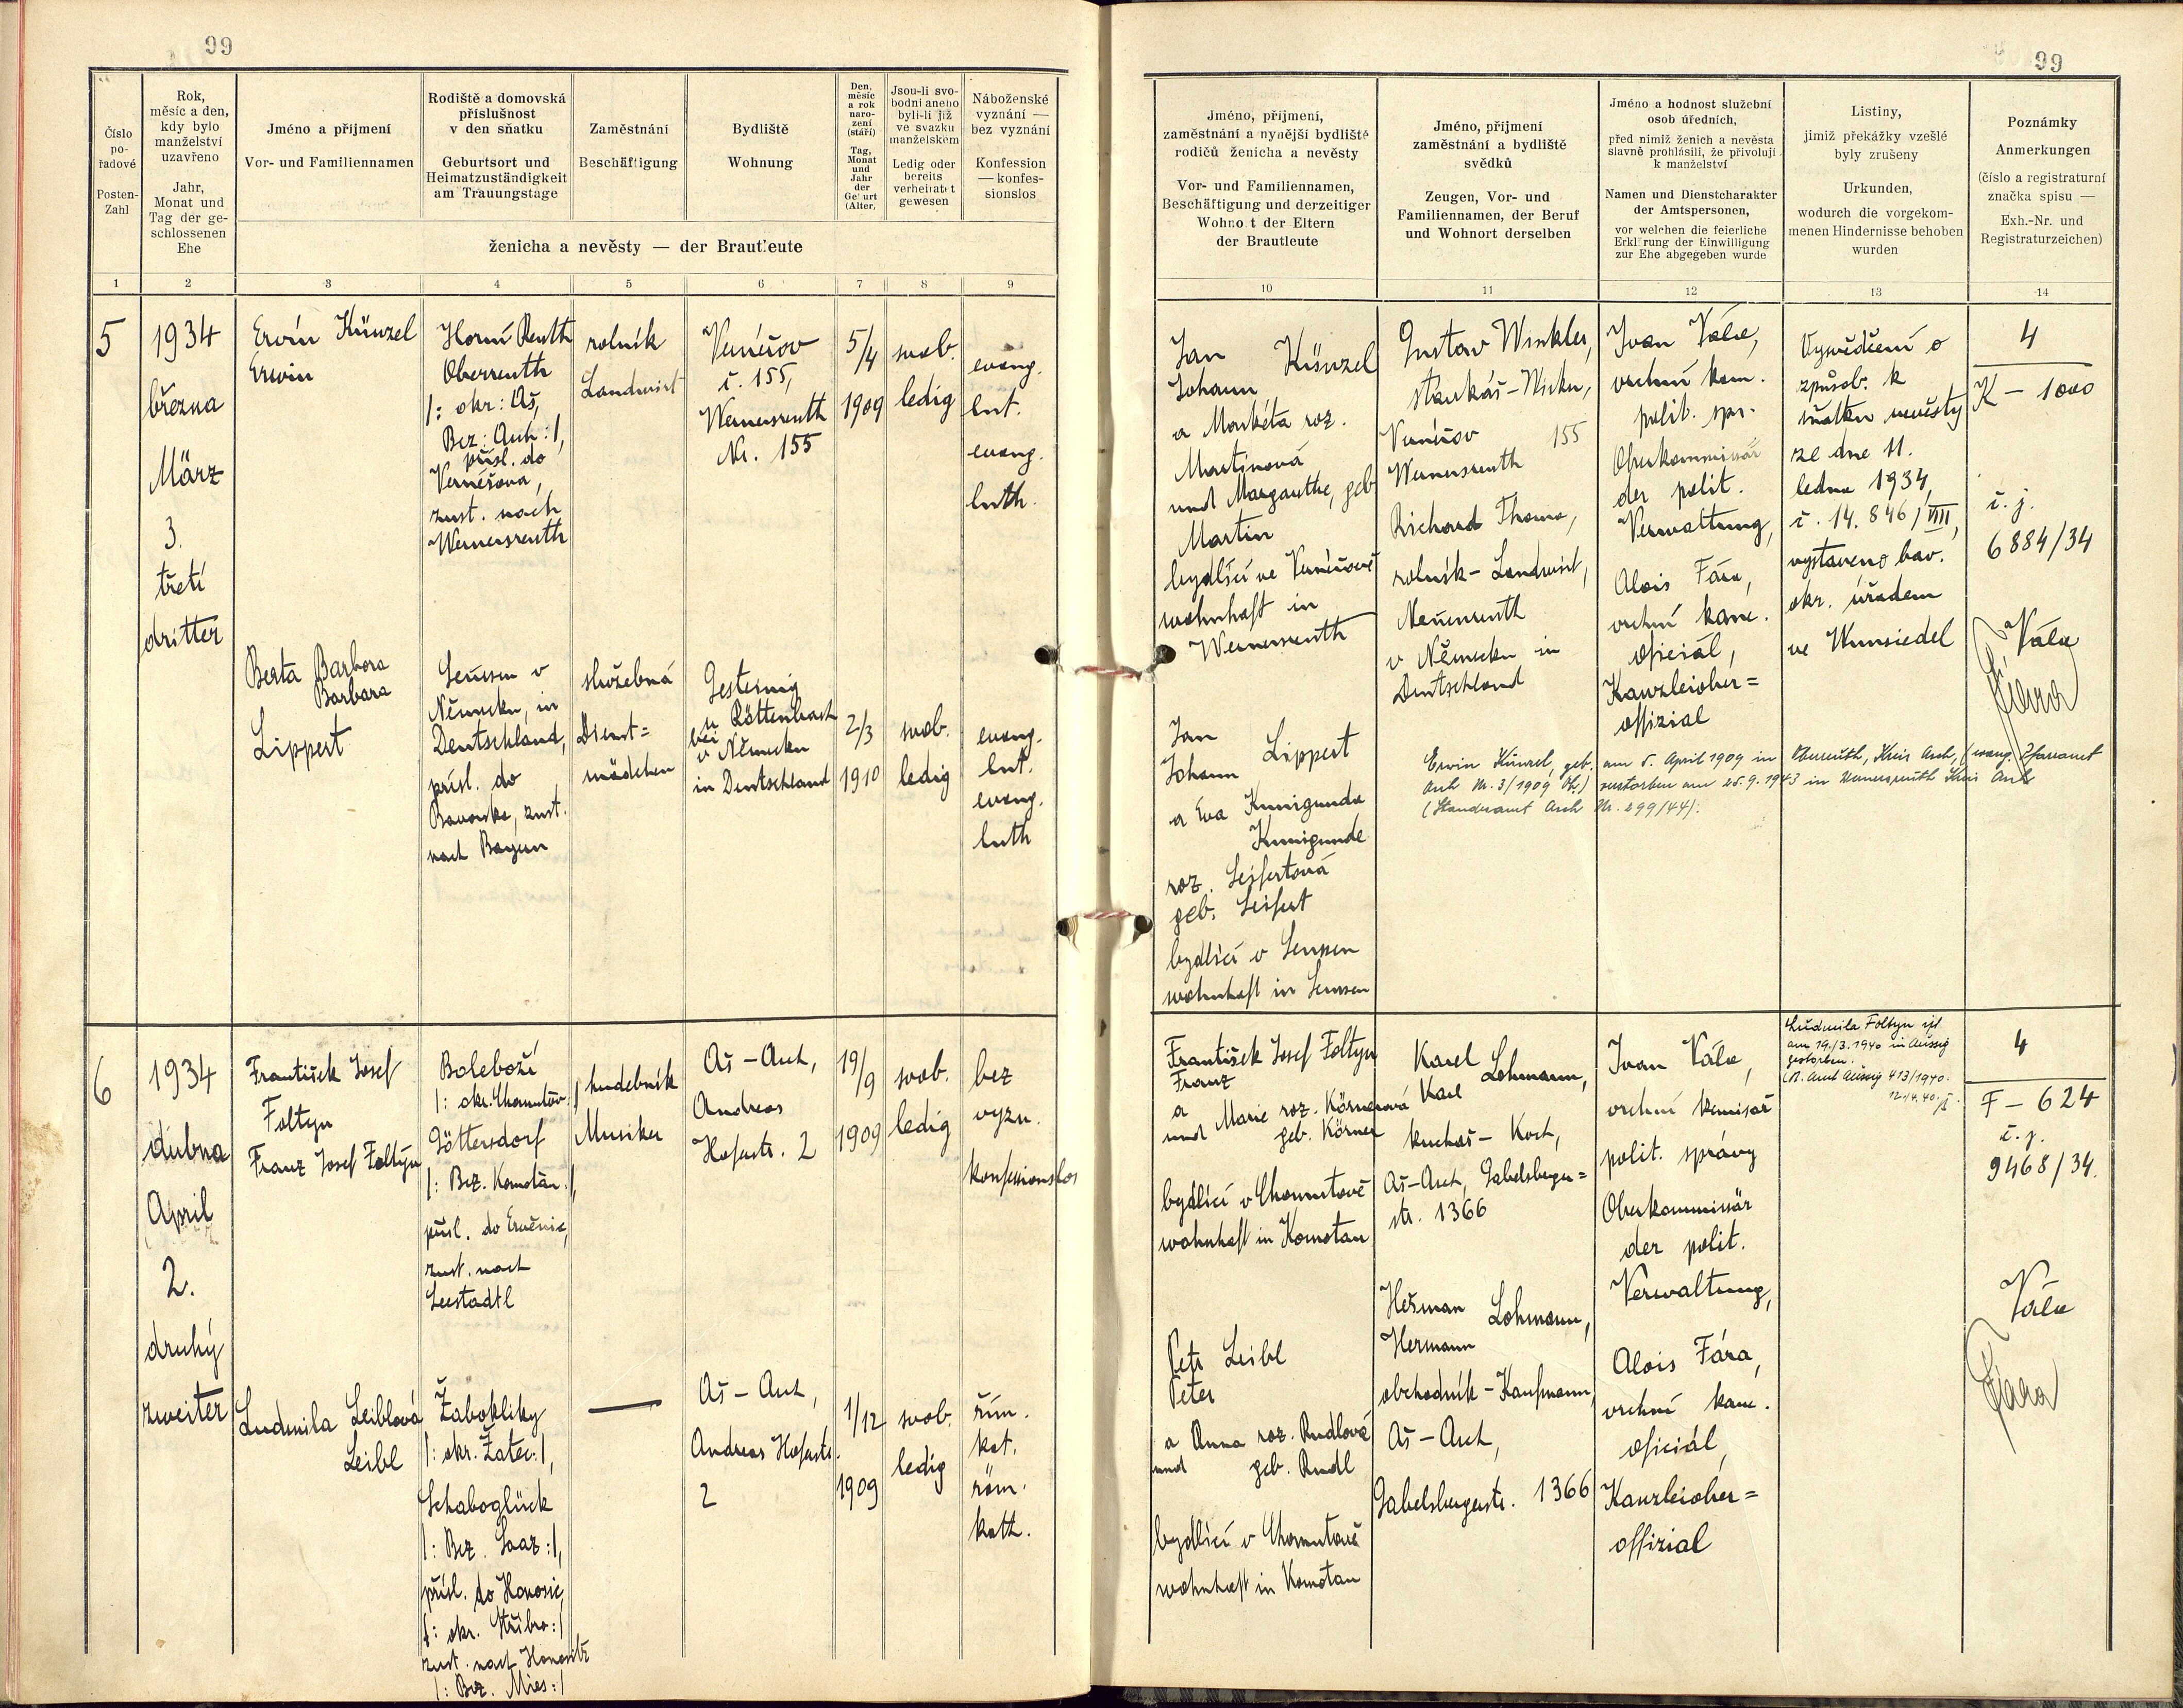 99
Číslo
po-
řadové
Posten-
Zahl
Rok,
měsíc a den,
kdy bylo
manželství
uzavřeno
Jahr,
Monat und
Tag der ge-
schlossenen
Ehe
Jméno a příjmení
Vor- und Familiennamen
Rodiště a domovská
příslušnost
v den sňatku
Geburtsort und
Heimatzuständigkeit
am Trauungstage
Zaměstnání
Beschäftigung
Bydliště
Wohnung
Den,
měsíc
a rok
naro-
zení
(stáří)
Tag,
Monat
und
Jahr
der
Geburt
(Alter,
Jsou-li svo-
bodni anebo
byli-li již
ve svazku
manželském
Ledig oder
bereits
verheiratet
gewesen
Náboženské
vyznání —
bez vyznání
Konfession
— konfes-
sionslos
ženicha a nevěsty — der Brautleute
1 2 3 4 5 6 7 8 9
5
1934
března
März
3.
třetí
dritter
Ervín Künzel
Erwin
Horní Reuth
Oberreuth
|: okr: Aš,
Bez: Asch :|,
přísl. do
Vernéřova,
zust. nach
Wernersreuth
rolník
Landwirt
Vernéřov
č. 155,
Wernersreuth
Nr. 155
5/4
1909
svob.
ledig
evang.
lut.
evang.
luth.
Berta Barbora
Barbara
Lippert
v
Německu, in
Deutschland,
přísl. do
Bavorska, zust.
nach Bayern
služebná
Dienst=
mädchen
u Röttenbach
bei
v Německu
in Deutschland
2/3
1910
svob.
ledig
evang.
lut.
evang.
luth
6
1934
dubna
April
2.
druhý
zweiter
František Josef
Foltyn
Franz Josef Foltyn
Boleboží
|: okr. Chomutov :|
Göttersdorf
|: Bez. Komotau :|,
přísl. do Ervěnic,
zust. nach
Seestadtl
hudebník
Musiker
Aš – Asch,
Andreas
Hoferstr. 2
19/9
1909
svob.
ledig
bez
vyzn.
konfessionslos
Ludmila Leiblová
Leibl
Žabokliky
|: okr. Žatec :|,
Schaboglück
|: Bez. Saaz :|,
přísl. do Honosic,
|: okr. Stříbro :|
zust. nach Honositz
|: Bez. Mies :|
—
Aš – Asch,
Andreas Hoferstr.
2
1/12
1909
svob.
ledig
řím.
kat.
röm.
kath.
99
Jméno, příjmení,
zaměstnání a nynější bydliště
rodičů ženicha a nevěsty
Vor- und Familiennamen,
Beschäftigung und derzeitiger
Wohnort der Eltern
der Brautleute
Jméno, příjmení
zaměstnání a bydliště
svědků
Zeugen, Vor- und
Familiennamen, der Beruf
und Wohnort derselben
Jméno a hodnost služební
osob úředních,
před nimiž ženich a nevěsta
slavně prohlásili, že přivolují
k manželství
Namen und Dienstcharakter
der Amtspersonen,
vor welchen die feierliche
Erklärung der Einwilligung
zur Ehe abgegeben wurde
Listiny,
jimiž překážky vzešlé
byly zrušeny
Urkunden,
wodurch die vorgekom-
menen Hindernisse behoben
wurden
Poznámky
Anmerkungen
(číslo a registraturní
značka spisu —
Exh.-Nr. und
Registraturzeichen)
10 11 12 13 14
Jan Künzel
Johann
a Markéta roz.
Martinová
und Margarethe, geb
Martin
bydlící ve Vernéřově
wohnhaft in
Wernersreuth
Gustav Winkler,
Vernéřov 155
Wernersreuth
Richard Thoma,
rolník – Landwirt,
Neuenreuth
v Německu in
Deutschland
Ivan Vála,
vrchní kom.
polit. spr.
Oberkommissär
der polit.
Verwaltung,
Alois Fára,
vrchní kanc.
oficiál,
Kanzleiober=
offizial
Vysvědčení o
způsob. k
sňatku nevěsty
ze dne 11.
ledna 1934,
č. 14.846/VIII,
vystaveno bav.
okr. úřadem
ve Wunsiedel
4
K – 1000
č. j.
6884/34
Vála
Fára
Jan
Johann Lippert
a Eva Kunigunda
Kunigunde
roz. Seifertová
geb. Seifert
bydlící v
wohnhaft in
Erwin Künzel, geb. am 5. April 1909 in Oberreuth, Kreis Asch, (evang. Pfarramt
Asch Nr. 3/1909 Ob.) verstorben am 25.9.1943 in Wernersreuth Kreis Asch
(Standesamt Asch Nr. 299/44).
František Josef Foltyn
Franz
a Marie roz. Körnerová
und geb. Körner
bydlící v Chomutově
wohnhaft in Komotau
Karel
Karl Lohmann,
kuchař – Koch,
Aš–Asch, Gabelsberger=
str. 1366
Heřman Lohmann,
Hermann
obchodník – Kaufmann,
Aš – Asch,
Gabelsbergerstr. 1366
Ivan Vála,
vrchní komisař
polit. správy
Oberkommissär
der polit.
Verwaltung,
Alois Fára,
vrchní kanc.
oficiál,
Kanzleiober=
offizial
Ludmila Foltyn ist
am 19./3.1940 in Aussig
gestorben.
Amt Aussig 413/1940.
12./4.40.
4
F – 624
č. j.
9468/34.
Vála
Fára
Petr Leibl
Peter
a Anna roz. Rudlová
und geb. Rudl
bydlící v Chomutově
wohnhaft in Komotau